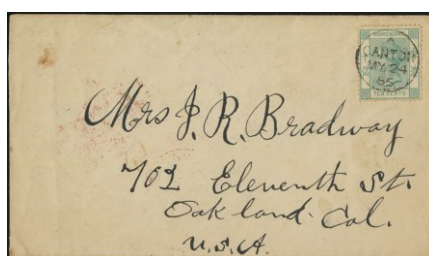 A
CANTON
MY 24
85
TEN CENTS
Mrs J. R. Bradway
702 Eleventh St.
Oakland. Cal.
U.S.A.